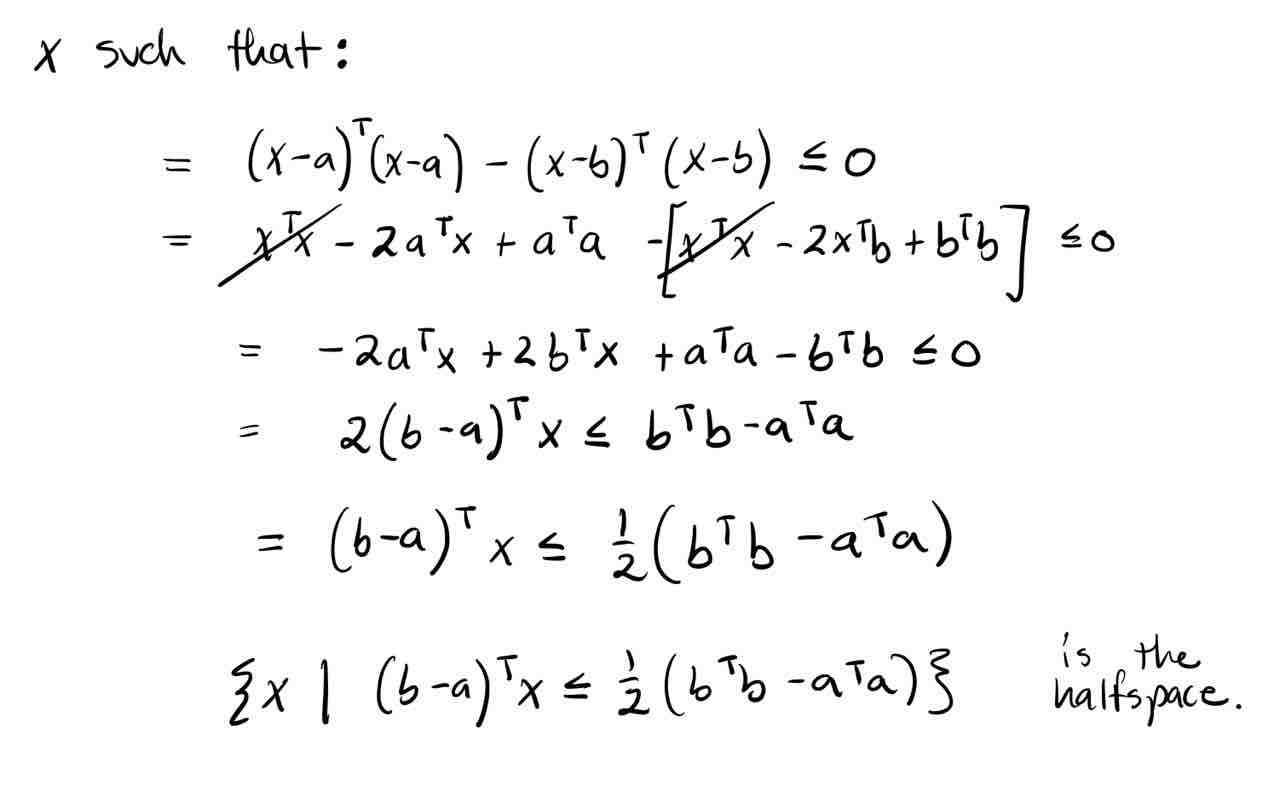 x such that:
= (x-a)ᵀ(x-a) - (x-b)ᵀ(x-b) ≤ 0
= xᵀx - 2aᵀx + aᵀa -[xᵀx - 2xᵀb + bᵀb] ≤ 0
= -2aᵀx + 2bᵀx + aᵀa - bᵀb ≤ 0
= 2(b-a)ᵀx ≤ bᵀb - aᵀa
= (b-a)ᵀx ≤ 1/2(bᵀb - aᵀa)
{x | (b-a)ᵀx ≤ 1/2(bᵀb - aᵀa)} is the
halfspace.